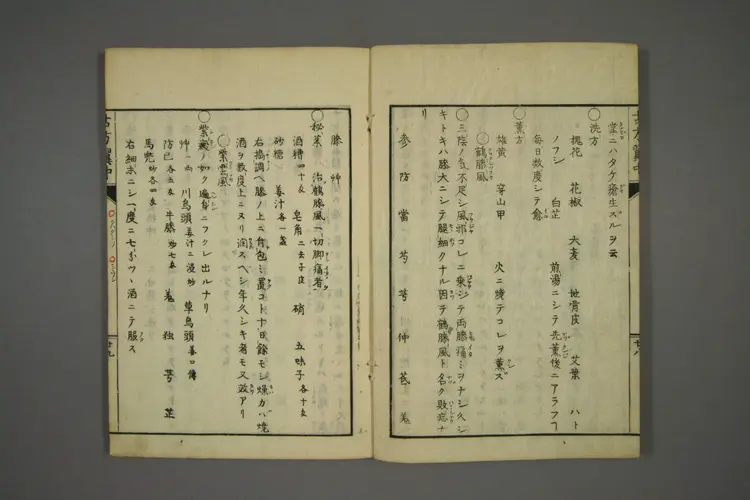 掌ニハタケ瘡生スルヲ云
○洗方
槐花 花椒 大麦 地骨皮 艾葉 ハト
ノフシ 白芷 煎湯ニシテ先薫後ニアラフヿ
毎日数度シテ愈
○薫方
雄黄 穿山甲 火ニ焼テコレヲ薫ス
○鶴膝風
○三陰ノ気不足シ風邪コレニ乗シテ両膝痛ミヲナシ久シ
キトキハ膝大ニシテ腿細クナル因テ鶴膝風ト名ク敗症ナ
リ
参 防 當 芍 芎 仲 芪 羗
膝 艸
○秘薬 治鶴膝風一切脚痛者
酒糟四十匁 皂角二去子皮 硝 五味子各十匁
砂糖 姜汁各一盞
右搗調ヘ膝ノ上ニ付包ミ置コト十日餘モシ燥カハ焼
酒ヲ数度上ニヌリ潤スヘシ年久シキ者モ又效アリ
○紫雲風
○紫ノ如ク遍身ニフクレ出ルナリ
艸一両 川烏頭姜汁ニ浸炒 草烏頭
防已各五匁 牛膝炒七匁 羗 独 芎 芷
馬 各四匁
右細末ニシ一度ニ七分ツヽ酒ニテ服ス
古方
廿八
廿九